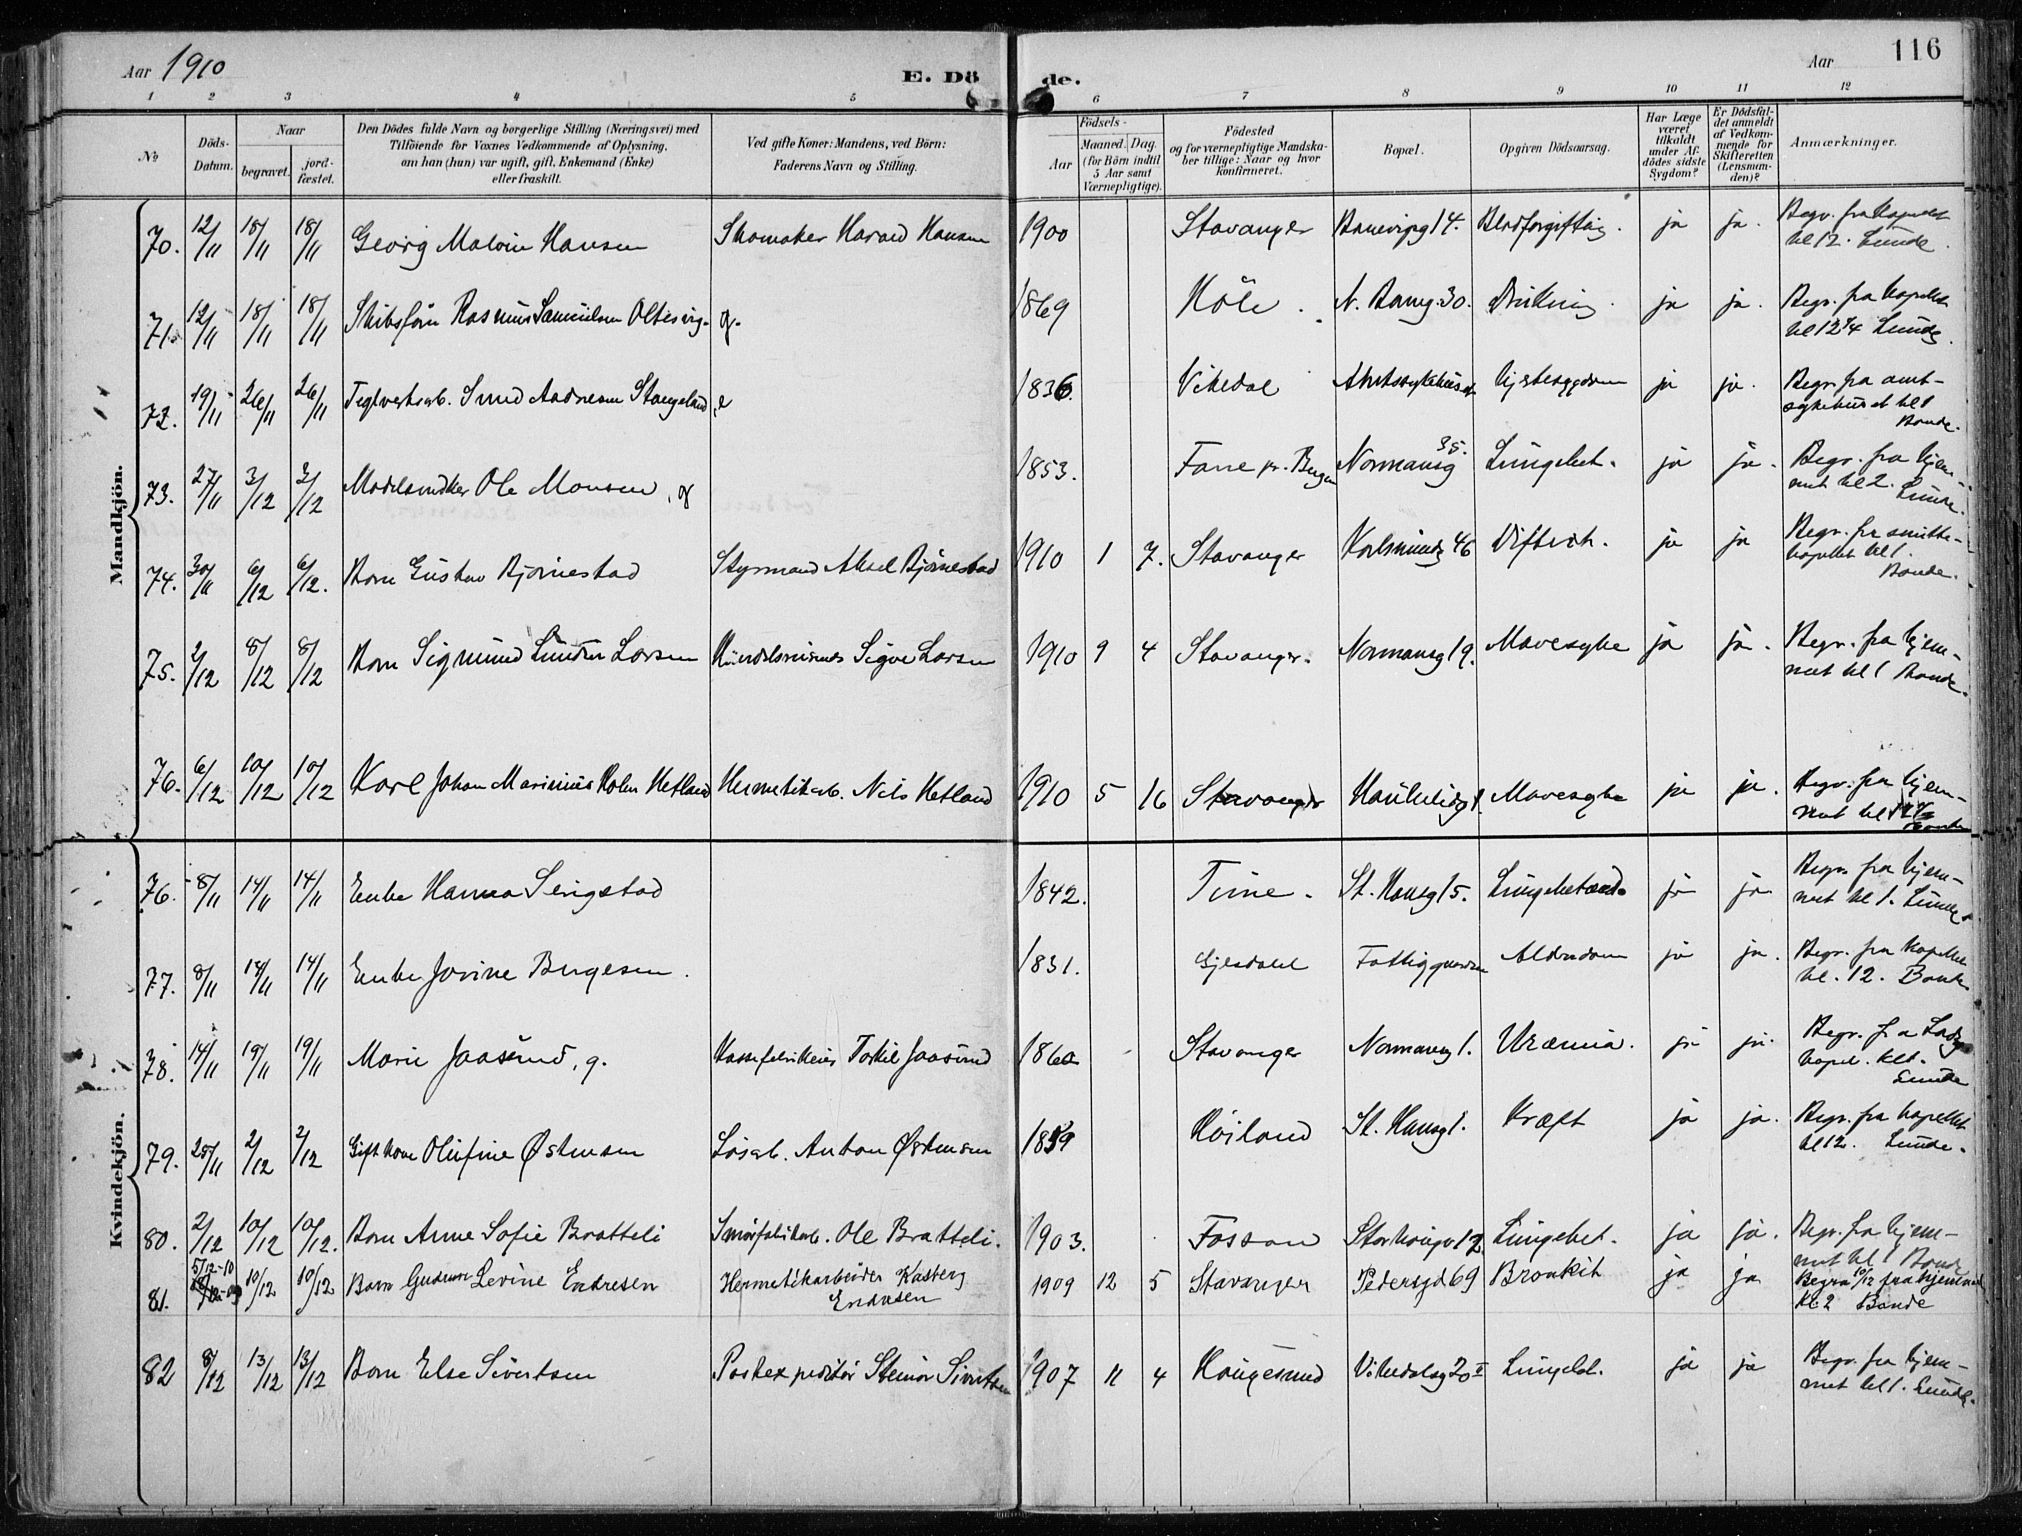 Aar 1910
E. Dö de.
Aar 116
1 2 3 4 5 6 7 8 9 10 11 12
No
Döds-Datum.
Naar
begravet.
jord-fæstet.
Den Dödes fulde Navn og borgerlige Stilling (Næringsvei) med
Tilföiende for Voxnes Vedkommende af Oplysning,
om han (hun) var ugift, gift, Enkemand (Enke)
eller fraskilt.
Ved gifte Koner: Mandens, ved Börn:
Faderens Navn og Stilling.
Födsels-
Aar
Maaned. Dag.
(for Börn indtil
5 Aar samt
Værnepligtige).
Födested
og for værnepligtige Mandska-
ber tillige: Naar og hvor
konfirmeret.
Bopæl.
Opgiven Dödsaarsag.
Har Læge
været
tilkaldt
under Af-
dödes sidste
Sygdom?
Er Dödsfal-
det anmeldt
af Vedkom-
mende for
Skifteretten
(Lensman-
den)?
Anmærkninger.
Mandkjön.
70. 12/11 18/11 18/11 Georg Malvin Hansen Skomaker Harald Hansen 1900 Stavanger 14. Blodforgiftnig. ja ja. Begr. fra kapelet
kl 12. Lunde.
71. 12/11 18/11 18/11 Skibsförer Rasmus Samuelsen Oltesvig. g. 1869 Höle. N. 30. Drukning. ja ja. Begr. fra kapellet
kl 12 Lunde.
72. 19/11 26/11 26/11 Teglverksarb. Aadnesen Stangeland, e 1836. Vikedal Amtssykehuset ja ja. Begr. fra amt-
sykehuset kl 1
Bonde.
73. 27/11 3/12 3/12 Modelsnedker Ole Monsen, g 1853. Fane pr. Bergen Normansg 35. Lungebet. ja ja. Begr. fra hjem-
met kl 2. Lunde.
74. 30/11 6/12 6/12. Barn Gustav Bjørnestad Styrmand Aksel Bjørnestad 1910 1 7. Stavanger Karlsmindg 46 Difterit. ja ja Begr. fra smitte-
kapellet kl 1.
Bonde.
75. 2/12 8/12 8/12 Barn Sigmund Larsen Sigve Larsen 1910 9 4 Stavanger. Normansg 19. Mavesyke ja ja. Begr. fra hjem-
met kl 1 Bonde.
76. 6/12 10/12 10/12 Karl Johan Marinius Holm Hetland Hermetikarb. Nils Hetland 1910 5 16 Stavanger 1. Mavesyke ja ja. Begr. fra hjem-
met kl
Kvindekjön.
76. 8/11 14/11 14/11 Enke Hanna Serigstad 1842. Time. St. Hansg 15. Lungebetænd. ja ja Begr. fra hjem-
met kl 1. Lunde.
77. 8/11 14/11 14/11 Enke Jorine Bergesen. 1831. Gjesdalel Fattiggaarden Alderdom ja ja. Begr. fra kapellet
kl. 12. Bonde
78. 14/11 19/11 19/11 Marie Jaasund, g. Kassefabrikeier Torkel Jaasund 1860 Stavanger Normansg 1. Uræmia. ja ja. Begr. fra
kapel. kl 1.
Lunde
79. 25/11 2/12 2/12 Gift kone Olufine Østensen Løsarb. Anton Østensen 1859 Høiland St. Hansg 1. Kræft ja ja. Begr. fra kapellet
kl 12. Lunde.
80. 2/12 10/12 10/12. Barn Anne Sofie Bratteli Smörfabrikarb. Ole Bratteli. 1903. Fossan Storhaugv 12 Lungebet. ja ja. Begr. fra hjem-
met kl 1 Bonde
81. 5/12-10 10/12 10/12 Barn Gudrun Levine Endresen Hermetikarbeider Kasberg
Endresen 1909 12 5 Stavanger Pedersgd 69 Bronkit ja ja Begrav 10/12 fra hjemmet
Kl. 2 Bonde
82 8/12 13/12 13/12 Barn Else Sivertsen Postexpeditör Steinar Sivertsen 1907 11 4 Haugesund Vikedalsg 20 II Lungebet. ja ja Begr. fra hjem-
met kl 1. Lunde.